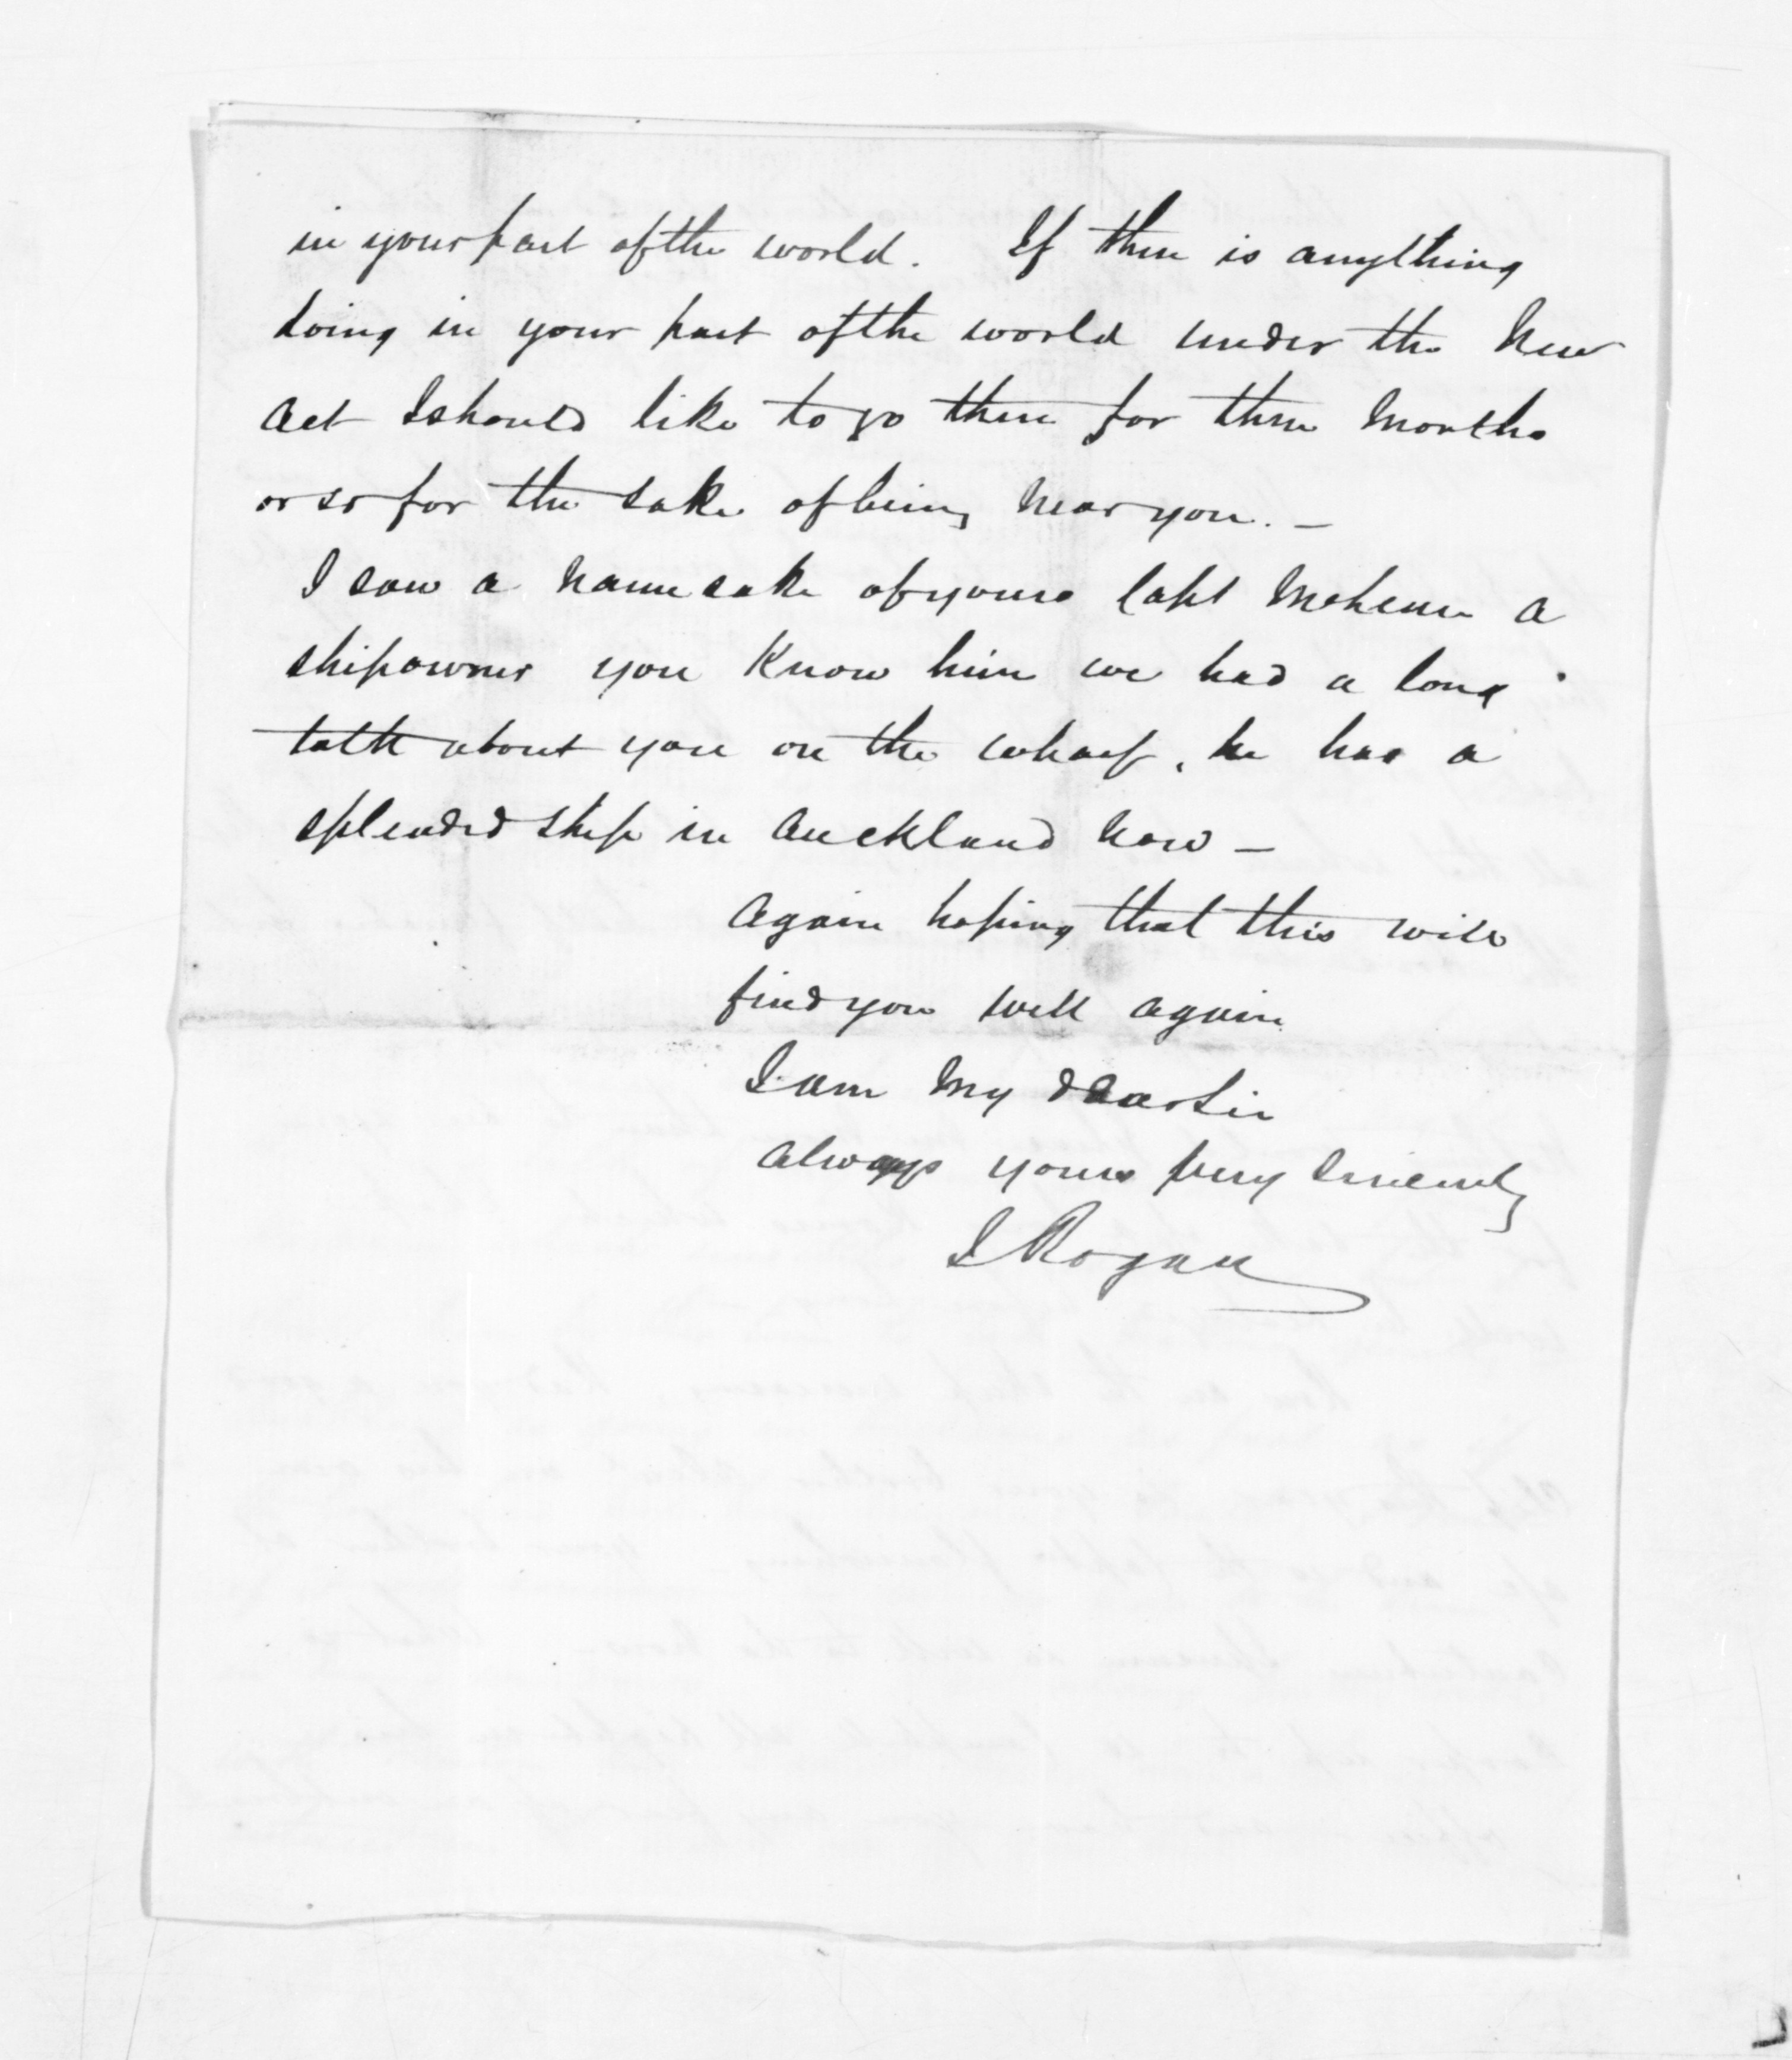 in your part of the world. If there is anything
doing in your part of the world under the New
Act I should like to go there for three months
or so for the sake of being near you. —
I saw a namesake of yours Capt McLean a
shipowner you know him we had a long
talk about you on the wharf, he has a
splended ship in Auckland now —
Again hoping that this will
find you well again
I am my dear Sir
always yours very sincerely
J Rogan